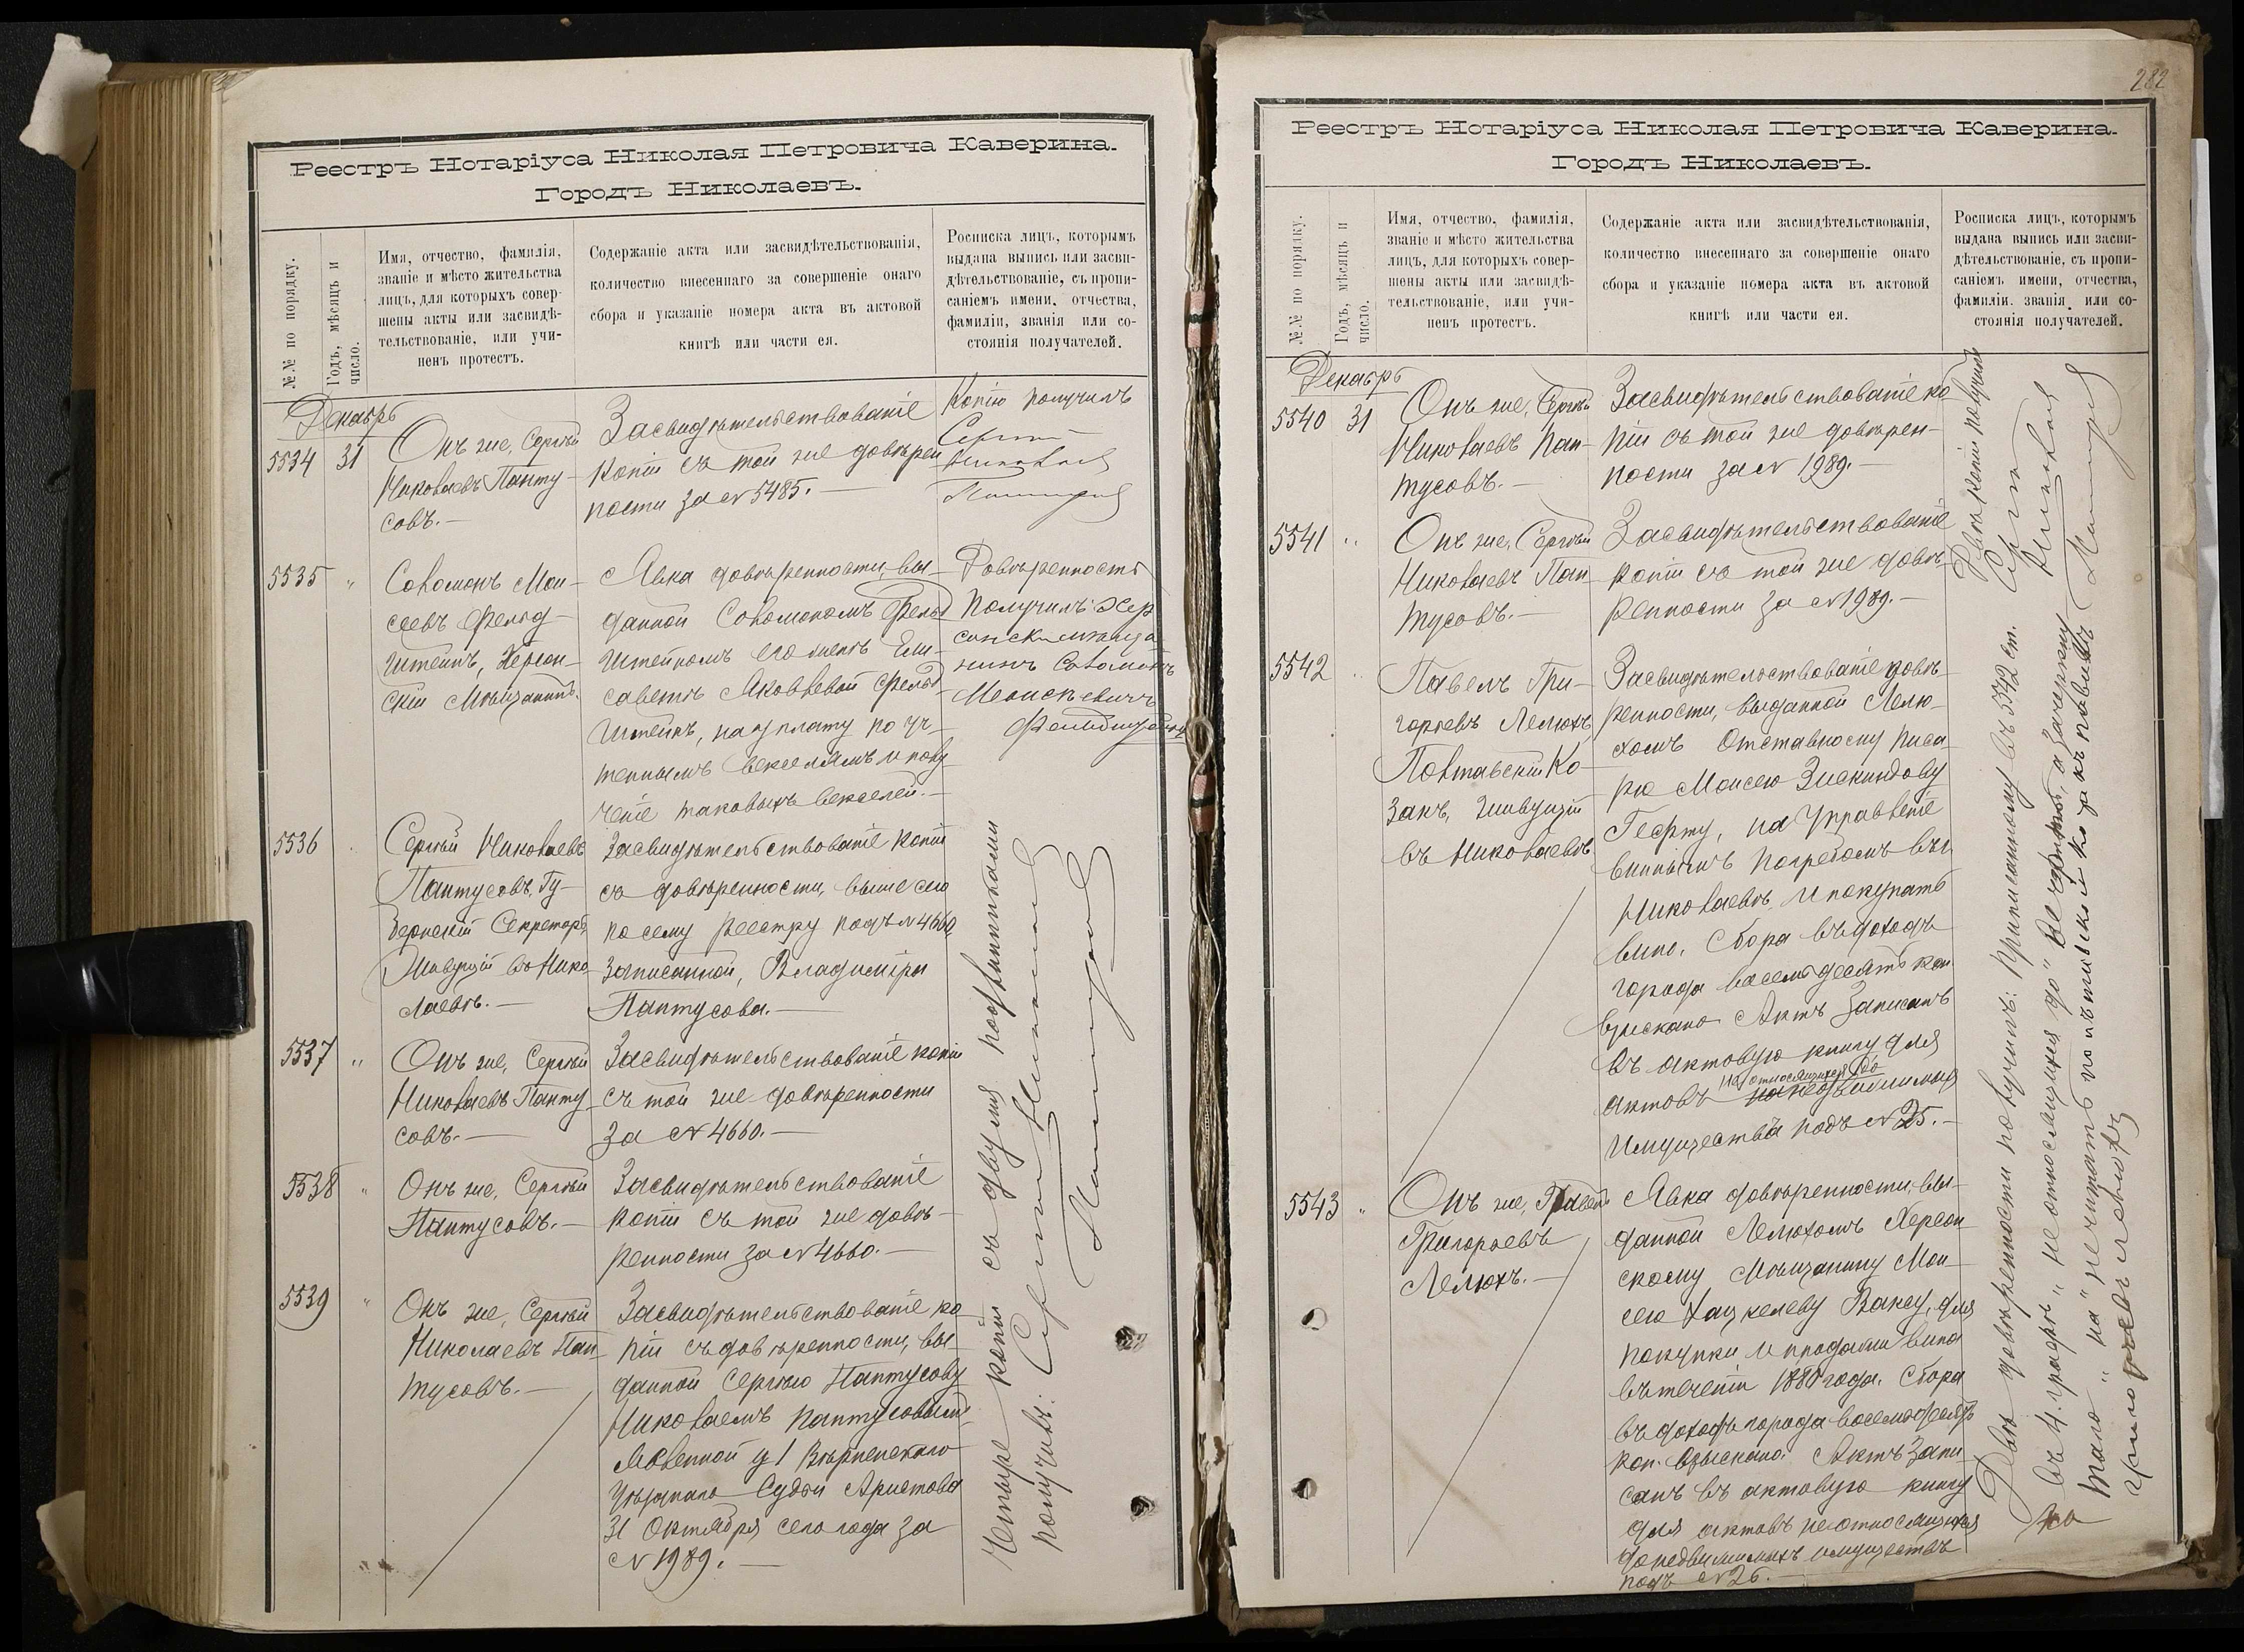 Реестръ Нотаріуса Николая Петровича Каверина.
Городъ Николаевъ.
№.№ по порядку.
Годъ, мѣсяцъ и
число.
Имя, отчество, фамилія,
званіе и мѣсто жительства
лицъ, для которыхъ совер-
шены акты или засвидѣ-
тельствованіе, или учи-
ненъ протестъ.
Содержаніе акта или засвидѣтельствованія,
количество внесеннаго за совершеніе онаго
сбора и указаніе номера акта въ актовой
книгѣ или части ея.
Росписка лицъ, которымъ
выдана выпись или засви-
дѣтельствованіе, съ пропи-
саніемъ имени, отчества,
фамиліи, званія или со-
стоянія получателей.
Декабрь
5534 31
Онъ же, Сергѣй
Николаевъ Панту-
совъ.-
Засвидѣтельствованіе
копіи съ той же довѣрен
ности за № 5485.-
Копію получилъ
Сергѣй
Николаевъ
Пантусовъ
5535 "
Соломонъ Мои-
сеевъ Фельд-
штейнъ, Херсон-
скій Мѣщанинъ.
Явка довѣренности, вы-
данной Соломономъ Фельд
штейномъ его женѣ Ели-
саветѣ Яковлевой Фельд-
штейнъ, на уплату по уч-
теннымъ векселямъ и полу-
ченіе таковыхъ векселей.-
Довѣренность
получилъ Хер
сонскій мѣща
нинъ Соломонъ
Моисѣевичъ
Фельдштейнъ
5536
Сергѣй Николаевъ
Пантусовъ, Гу-
бернскій Секретарь,
живущій въ Нико-
лаевѣ.-
Засвидѣтельствованіе копіи
съ довѣренности, выше сего
по сему реестру подъ № 4660,
записанной, Владиміра
Пантусова.-
5537 "
Онъ же, Сергѣй
Николаевъ Панту-
совъ.-
Засвидѣтельствованіе копіи
съ той же довѣренности
за № 4660.-
5538 "
Онъ же, Сергѣй
Пантусовъ.-
Засвидѣтельствованіе
копіи съ той же довѣ-
ренности за № 4660.-
5539 "
Онъ же, Сергѣй
Николаевъ Пан-
тусовъ.-
Засвидѣтельствованіе ко-
піи съ довѣренности, вы-
данной Сергѣю Пантусову
Николаемъ Пантусовымъ,
явленной у Вѣрненскаго
Уѣзднаго Судьи Аристова
31 Октября сего года за
№ 1989.-
Четыре копіи съ двумя подлинниками
получилъ: Сергѣй Николаевъ
Пантусовъ
282
Реестръ Нотаріуса Николая Петровича Каверина.
Городъ Николаевъ.
№.№ по порядку.
Годъ, мѣсяцъ и
число.
Имя, отчество, фамилія,
званіе и мѣсто жительства
лицъ, для которыхъ совер-
шены акты или засвидѣ-
тельствованіе, или учи-
ненъ протестъ.
Содержаніе акта или засвидѣтельствованія,
количество внесеннаго за совершеніе онаго
сбора и указаніе номера акта въ актовой
книгѣ или части ея.
Росписка лицъ, которымъ
выдана выпись или засви-
дѣтельствованіе, съ пропи-
саніемъ имени, отчества,
фамиліи. званія или со-
стоянія получателей.
Декабрь
5540 31
Онъ же, Сергѣй
Николаевъ Пан-
тусовъ.-
Засвидѣтельствованіе ко
піи съ той же довѣрен-
ности за № 1989.-
5541 "
Онъ же, Сергѣй
Николаевъ Пан-
тусовъ.-
Засвидѣтельствованіе
копіи съ той же довѣ-
ренности за № 1989.-
Двѣ копіи получилъ
Сергѣй
Николаевъ
Пантусовъ
5542 "
Павелъ Гри-
горьевъ Лелюхъ,
Полтавскій Ко-
закъ, живущій
въ Николаевѣ
Засвидѣтельствованіе довѣ-
ренности, выданной Лелю-
хомъ Отставному писа-
рю Моисею
на управленіе
виннымъ погребомъ въ
Николаевѣ, и покупать
вино. Сбора въ доходъ
города восемьдесятъ коп.
взыскано. Актъ записанъ
въ актовую книгу для
актовъ не относящихся до недвижимыхъ
имуществъ подъ № 25.-
5543 "
Онъ же, Павелъ
Григорьевъ
Лелюхъ.-
Явка довѣренности, вы-
данной Лелюхомъ Херсон-
скому Мѣщанину Мои-
сею Хацкелеву Ваксу, для
покупки и продажи вина
въ теченіи 1880 года. Сбора
въ доходъ города восемьдесятъ
коп. взыскано. Актъ запи-
санъ въ актовую книгу
для актовъ не относящихся
до недвижимыхъ имуществъ
подъ № 26.-
Двѣ довѣренности получилъ: приписанному въ 5542 ст.
въ 4. графѣ "не относящихся до" вѣрить, а зачеркну
тало "на" не читать